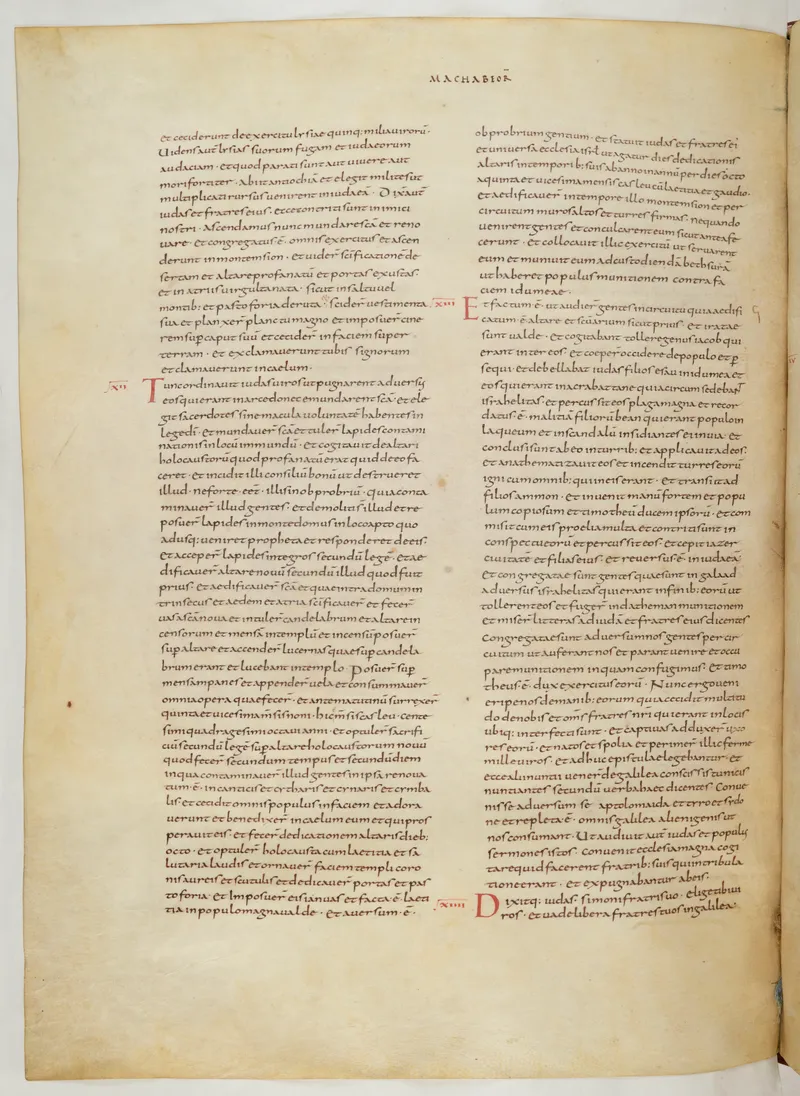 MACHABEOR̄
et ceciderunt de exercitu lysiae quinq: milia uirorū·
Uidens aut̄ lysias suorum fugam et iudaeorum
audaciam · et quod parati sunt aut uiuere aut
mori fortiter · abiit antiochiā et elegit milites ut
multiplicati rursus uenirent in iudaeā · Dixit aut̄
iudas et fratres eius · ecce contriti sunt inimici
nostri · Ascendamus nunc mundare sc̄a et reno
uare · Et congregatus ē · omnis exercitus et ascen
derunt in montem sion · et uider̄ sc̄ificationē de
sertam et altare profanatū et portas exustas·
et in atriis uirgulta nata · sicut in saltu uel
montib: et pastoforia deruta · scider̄ uestimenta
sua et planxer̄ planctu magno et imposuer̄ cine
rem sup caput suū et cecider̄ in faciem super
terram · Et exclamauerunt tubis signorum
et clamauerunt in caelum·
XII Tunc ordinauit iudas uiros ut pugnarent aduersus
eos qui erant in arce donec emundarent sc̄a · et ele
git sacerdotes sine macula uoluntatē habentes in
lege dī · Et mundauer̄ sc̄a et tuler̄ lapides contami
nationis in locū inmundū · Et cogitauit de altari
holocaustorū quod profanatū erat quid de eo fa
ceret · Et incidit illi consiliū bonū ut destrueret
illud · ne forte · eēt · illis in obprobriū · quia conta
minauer̄ illud gentes · Et demoliti s̄ illud et re
posuer̄ lapides in monte domus in loco apto quo
adusq: ueniret propheta et responderet de eis·
Et acceper̄ lapides integros secundū legē · Et ae
dificauer̄ altare nouū secundū illud quod fuit
prius · Et aedificauer̄ sc̄a et quae intra domum in
trinsecus et aedem et atria sc̄ificauer̄ et fecer̄
uasa sc̄a noua et intuler̄ candelabrum et altare in
censorum et mensā in templū et incensū posuer̄
sup altare et accender̄ lucernas quae sup candela
brum erant et lucebant in templo · Posuer̄ sup
mensam panes et appender̄ uela et consummauer̄
omnia opera quae fecer̄ · et ante matutinū surrexer̄
quinta et uicesima mensis noni · hic mensis casleu · cente
simi quadragesimi octaui anni · Et optuler̄ sacrifi
ciū secundū legē sup altare holocaustorum nouū
quod fecer̄ secundum tempus et secundū diem
in qua contaminauer̄ illud gentes in ipsa renoua
tum ē · in canticis et cytharis et cinaris et cymba
lis et cecidit omnis populus in faciem et adora
uerunt et benedixer̄ in caelum eum et qui pros
perauit eis · Et fecer̄ dedicationem altaris dieb:
octo · et optuler̄ holocausta cum laetitia et sa
lutaria laudis et ornauer̄ faciem templi coro
nis aureis et scutulis et dedicauer̄ portas et pas
toforia · et Imposuer̄ eis ianuas et facta ē · laeti
tia in populo magna ualde · et auersum · ē ·
obprobrium gentium · et statuit iudas et fratres ei
et uniuersa ecclesia isrl̄ ut agatur dies dedicationis
altaris in temporib: suis ab anno in annū per dies octo
a quinta et uicesima mensis casleu cū laetitia et gaudio·
et aedificauer̄ in tempore illo montem sion et per
circuitum muros altos et turres firmas · nequando
uenirent gentes et conculcarent eum sicut antea fe
cerunt · et collocauit illuc exercitū ut seruarent
eum et muniuit eum ad custodiendā bethsurā
ut haberet populus munitionem contra fa
ciem idumeae·
XIII Et factum ē · ut audier̄ gentes in circuitu quia aedifi
catum · ē altare et sc̄uarium sicut prius · et iratae
sunt ualde · Et cogitabant tollere genus iacob qui
erant inter eos · Et coeper̄ occidere de populo et p̲
sequi · Et debellabat iudas filios esau in idumea et
eos qui erant in acrabattane quia circum sedebant
israhelitas et percussit eos plaga magna et recor
datus · ē · malitiā filiorū bean qui erant populo in
laqueum et in scandalū insidiantes ei in uia · Et
conclusi sunt ab eo in turrib: et applicauit ad eos·
et anathematizauit eos et incendit turres eorū
igni cum omnib: qui in eis erant · Et transiit ad
filios ammon · Et inuenit manū fortem et popu
lum copiosum et timotheū ducem ipsorū · et com
misit cum eis proelia multa et contriti sunt in
conspectu eorū et percussit eos · Et cepit iazer
ciuitatē et filias eius · et reuersus · ē · in iudaeā·
Et congregatae sunt gentes quae sunt in galaad
aduersus israhelitas qui erant in finib: eorū ut
tollerent eos et fuger̄ in datheman munitionem
et miser̄ litteras ad iudā et fratres eius dicentes
Congregatae sunt aduersum nos gentes per cir
cuitum ut auferant nos et parant uenire et occu
pare munitionem in quam confugimus · Et timo
theus · ē · dux exercitus eorū · Nunc ergo ueni
eripe nos de manib: eorum quia cecidit multitu
do de nobis et om̄s fratres nr̄i qui erant in locis
ubiq: interfecti sunt · Et captiuas adduxer̄ uxo
res eorū · et natos et spolia et perimer̄ illic ferme
mille uiros · Et adhuc epistulae legebantur · et
ecce alii nuntii uener̄ de galilea conscissis tunicis
nuntiantes secundū uerba haec dicentes · Conue
nisse aduersum se a ptolomaida et tyro et sydo
ne et repleta ē · omnis galilea alienigenis ut
nos consumant · Ut audiuit aut̄ iudas et populus
sermones istos · Conuenit ecclesia magna cogi
tare quid facerent fratrib: suis qui in tribula
tione erant · et expugnabantur ab eis·
XIIII Dixitq: iudas · simoni fratri suo · elige tibi ui
ros · et uade libera fratres tuos in galilea·